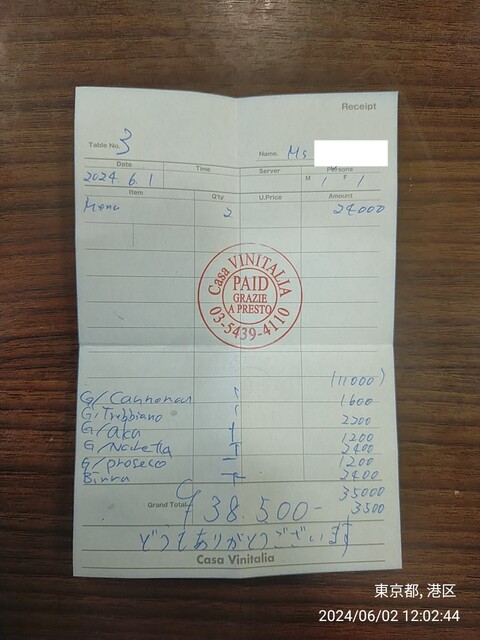 Receipt
Table No. 3
Name. Ms
Date Time Server Persons
2024. 6. 1 M 1 F 1
Item Q'ty U.Price Amount
Menu 2 24000
Casa VINITALIA
PAID
GRAZIE
A PRESTO
03-5439-4110
(11000)
G/Cannonau 1 1600
G/Trebbiano 1 2200
G/ 1200
G/ 2400
G/proseco 1200
Birra 2400
35000
Grand Total ¥38.500- 3500
どうもありがとうございます
Casa Vinitalia
東京都, 港区
2024/06/02 12:02:44